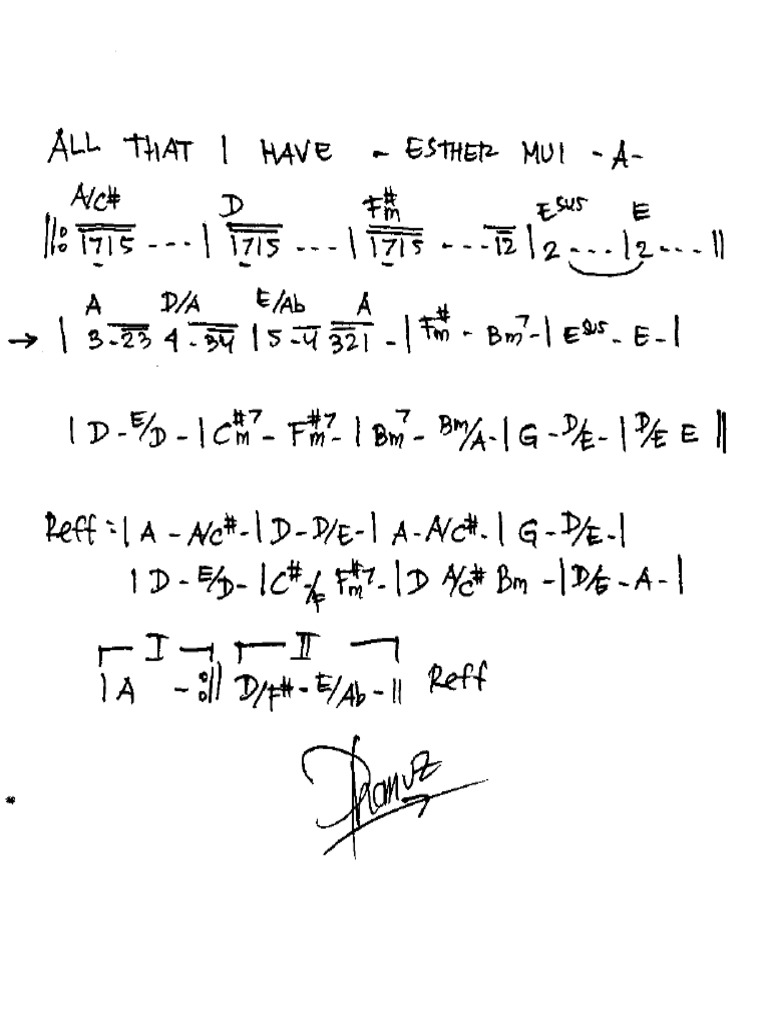 ALL THAT I HAVE - ESTHER MUI -A-
A/C# D F#m Esus E
||: 1715 --- | 1715 --- | 1715 --- 12 | 2 --- | 2 --- ||
A D/A E/Ab A
→ | 3-23 4-34 | 5-4 321 - | F#m - Bm7 - | Esus - E - |
| D - E/D - | C#m7 - F#m7 - | Bm7 - Bm/A - | G - D/E - | D/E E ||
Reff = | A - A/C# - | D - D/E - | A - A/C# - | G - D/E - |
| D - E/D - | C# -/F F#m7 - | D A/C# Bm - | D/E - A - |
I II
| A - :|| D/F# - E/Ab - || Reff